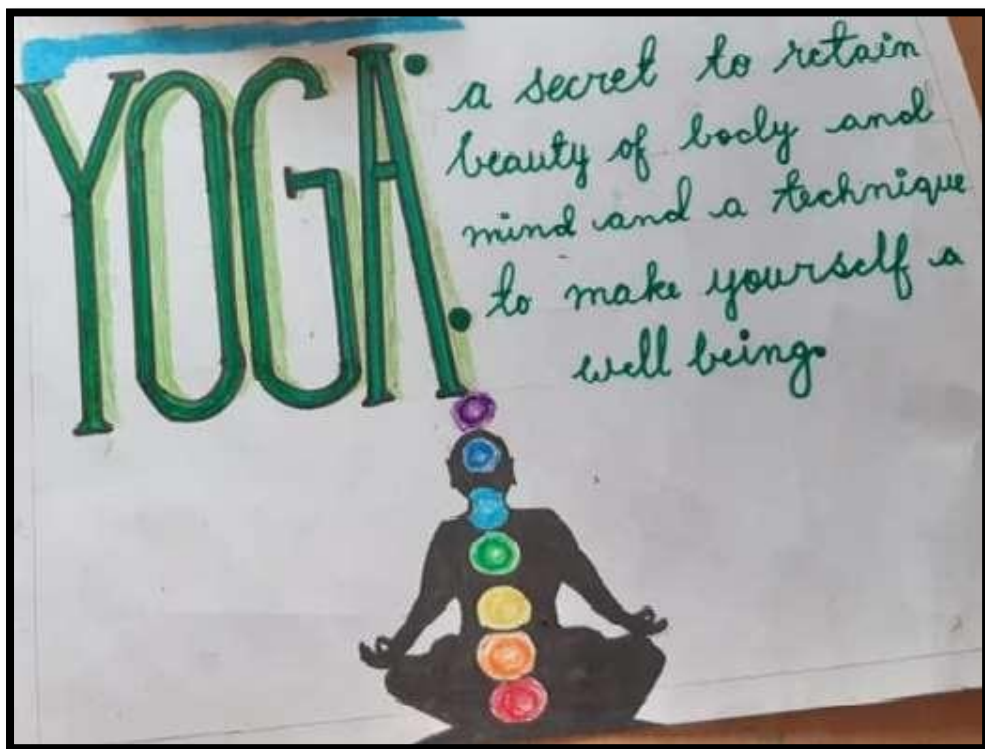 YOGA:
a secret to retain
beauty of body and
mind and a technique
to make yourself a
well being.